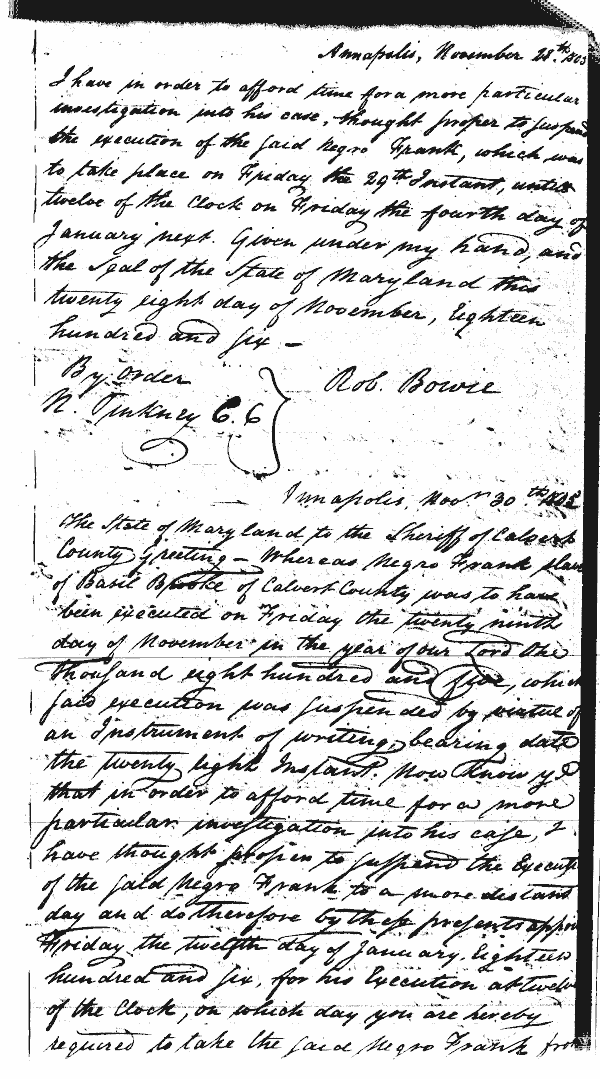 Annapolis, November 28.th 1805
I have in order to afford time for a more particular
investigation into his case, thought proper to suspend
the execution of the said Negro Frank, which was
to take place on Friday the 29th Instant, until
twelve of the Clock on Friday the fourth day of
January next. Given under my hand, and
the Seal of the State of Maryland this
twenty eight day of November, Eighteen
hundred and six –
By order
Rob. Bowie
N. Pinkney C. C
Annapolis, Novr 30th
The State of Maryland to the Sheriff of Calvert
County Greeting – Whereas Negro Frank slave
of Basil Brooke of Calvert County was to have
been executed on Friday the twenty ninth
day of November in the year of our Lord One
thousand eight hundred and five, which
said execution was suspended by virtue of
an Instrument of writing, bearing date
the twenty eight Instant. Now Know ye
that in order to afford time for a more
particular investigation into his case, I
have thought proper to suspend the Executi
of the said Negro Frank to a more distant
day and do therefore by these presents appoi
Friday the twelfth day of January Eighteen
hundred and six, for his Execution at twelve
of the Clock, on which day you are hereby
required to take the said Negro Frank from